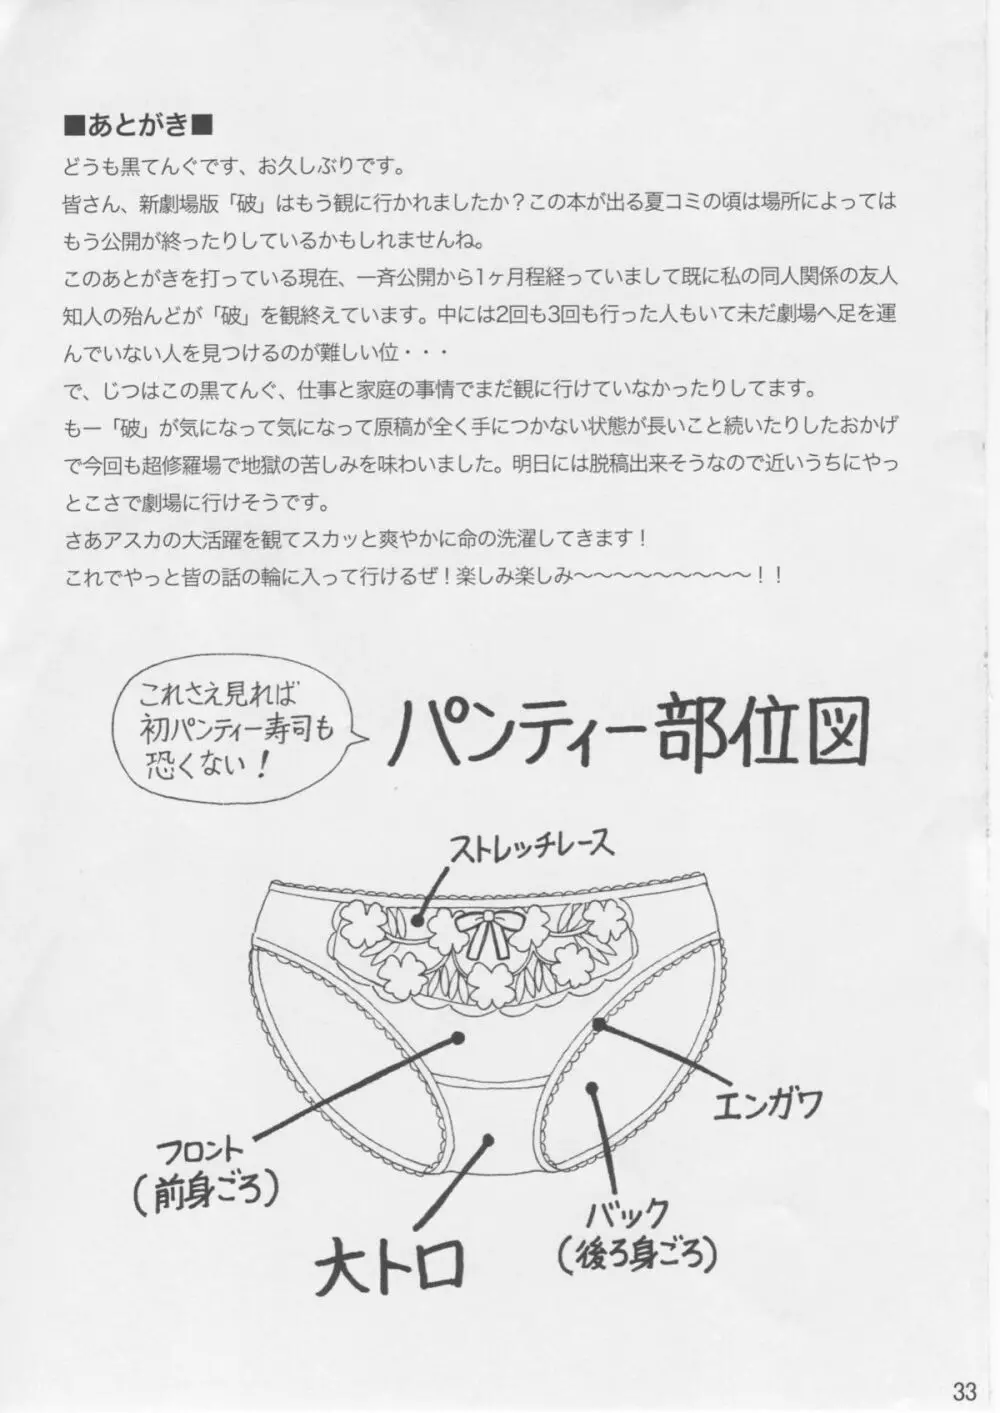 ■あとがき■
どうも黒てんぐです、お久しぶりです。
皆さん、新劇場版「破」はもう観に行かれましたか？この本が出る夏コミの頃は場所によっては
もう公開が終ったりしているかもしれませんね。
このあとがきを打っている現在、一斉公開から1ヶ月程経っていまして既に私の同人関係の友人
知人の殆んどが「破」を観終えています。中には2回も3回も行った人もいて未だ劇場へ足を運
んでいない人を見つけるのが難しい位・・・
で、じつはこの黒てんぐ、仕事と家庭の事情でまだ観に行けていなかったりしてます。
もー「破」が気になって気になって原稿が全く手につかない状態が長いこと続いたりしたおかげ
で今回も超修羅場で地獄の苦しみを味わいました。明日には脱稿出来そうなので近いうちにやっ
とこさで劇場に行けそうです。
さあアスカの大活躍を観てスカッと爽やかに命の洗濯してきます！
これでやっと皆の話の輪に入って行けるぜ！楽しみ楽しみ～～～～～～～～～！！
これさえ見れば
初パンティー寿司も
恐くない！
パンティー部位図
ストレッチレース
エンガワ
フロント
(前身ごろ)
バック
(後ろ身ごろ)
大トロ
33